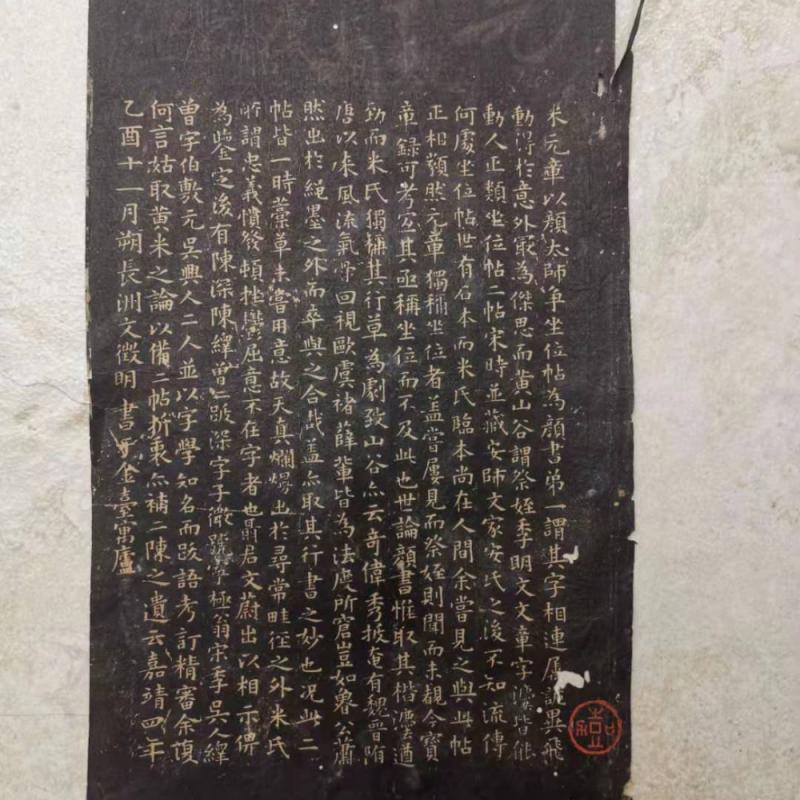 米元章以顏太師爭坐位帖為顏書第一謂其字相連屬詭異飛
動得於意外最為傑思而黃山谷謂祭姪季明文文章字灋皆能
動人正類坐位帖二帖宋時並藏安師文家安氏之後不知流傳
何處坐位帖世有石本而米氏臨本尚在人間余嘗見之與此帖
正相類然元章獨稱坐位者盖嘗屢見而祭姪則聞而未覩今寶
章錄可考宜其亟稱坐位而不及此也世論顏書惟取其楷灋遒
勁而米氏獨稱其行草為劇致山谷亦云奇偉秀拔奄有魏晉隋
唐以來風流氣骨回視歐虞褚薛輩皆為法度所窘豈如魯公蕭
然出於繩墨之外而卒與之合哉盖亦取其行書之妙也况此二
帖皆一時藁草未嘗用意故天真爛熳出於尋常畦徑之外米氏
所謂忠義憤發頓挫鬱屈意不在字者也聶君文蔚出以相示俾
為鑒定後有陳深陳繹曾二跋深字子微號寧極翁宋季吳人繹
曾字伯敷元吳興人二人並以字學知名而跋語考訂精審余復
何言姑取黃米之論以備二帖折衷亦補二陳之遺云嘉靖四年
乙酉十一月朔長洲文徵明書于金臺寓廬